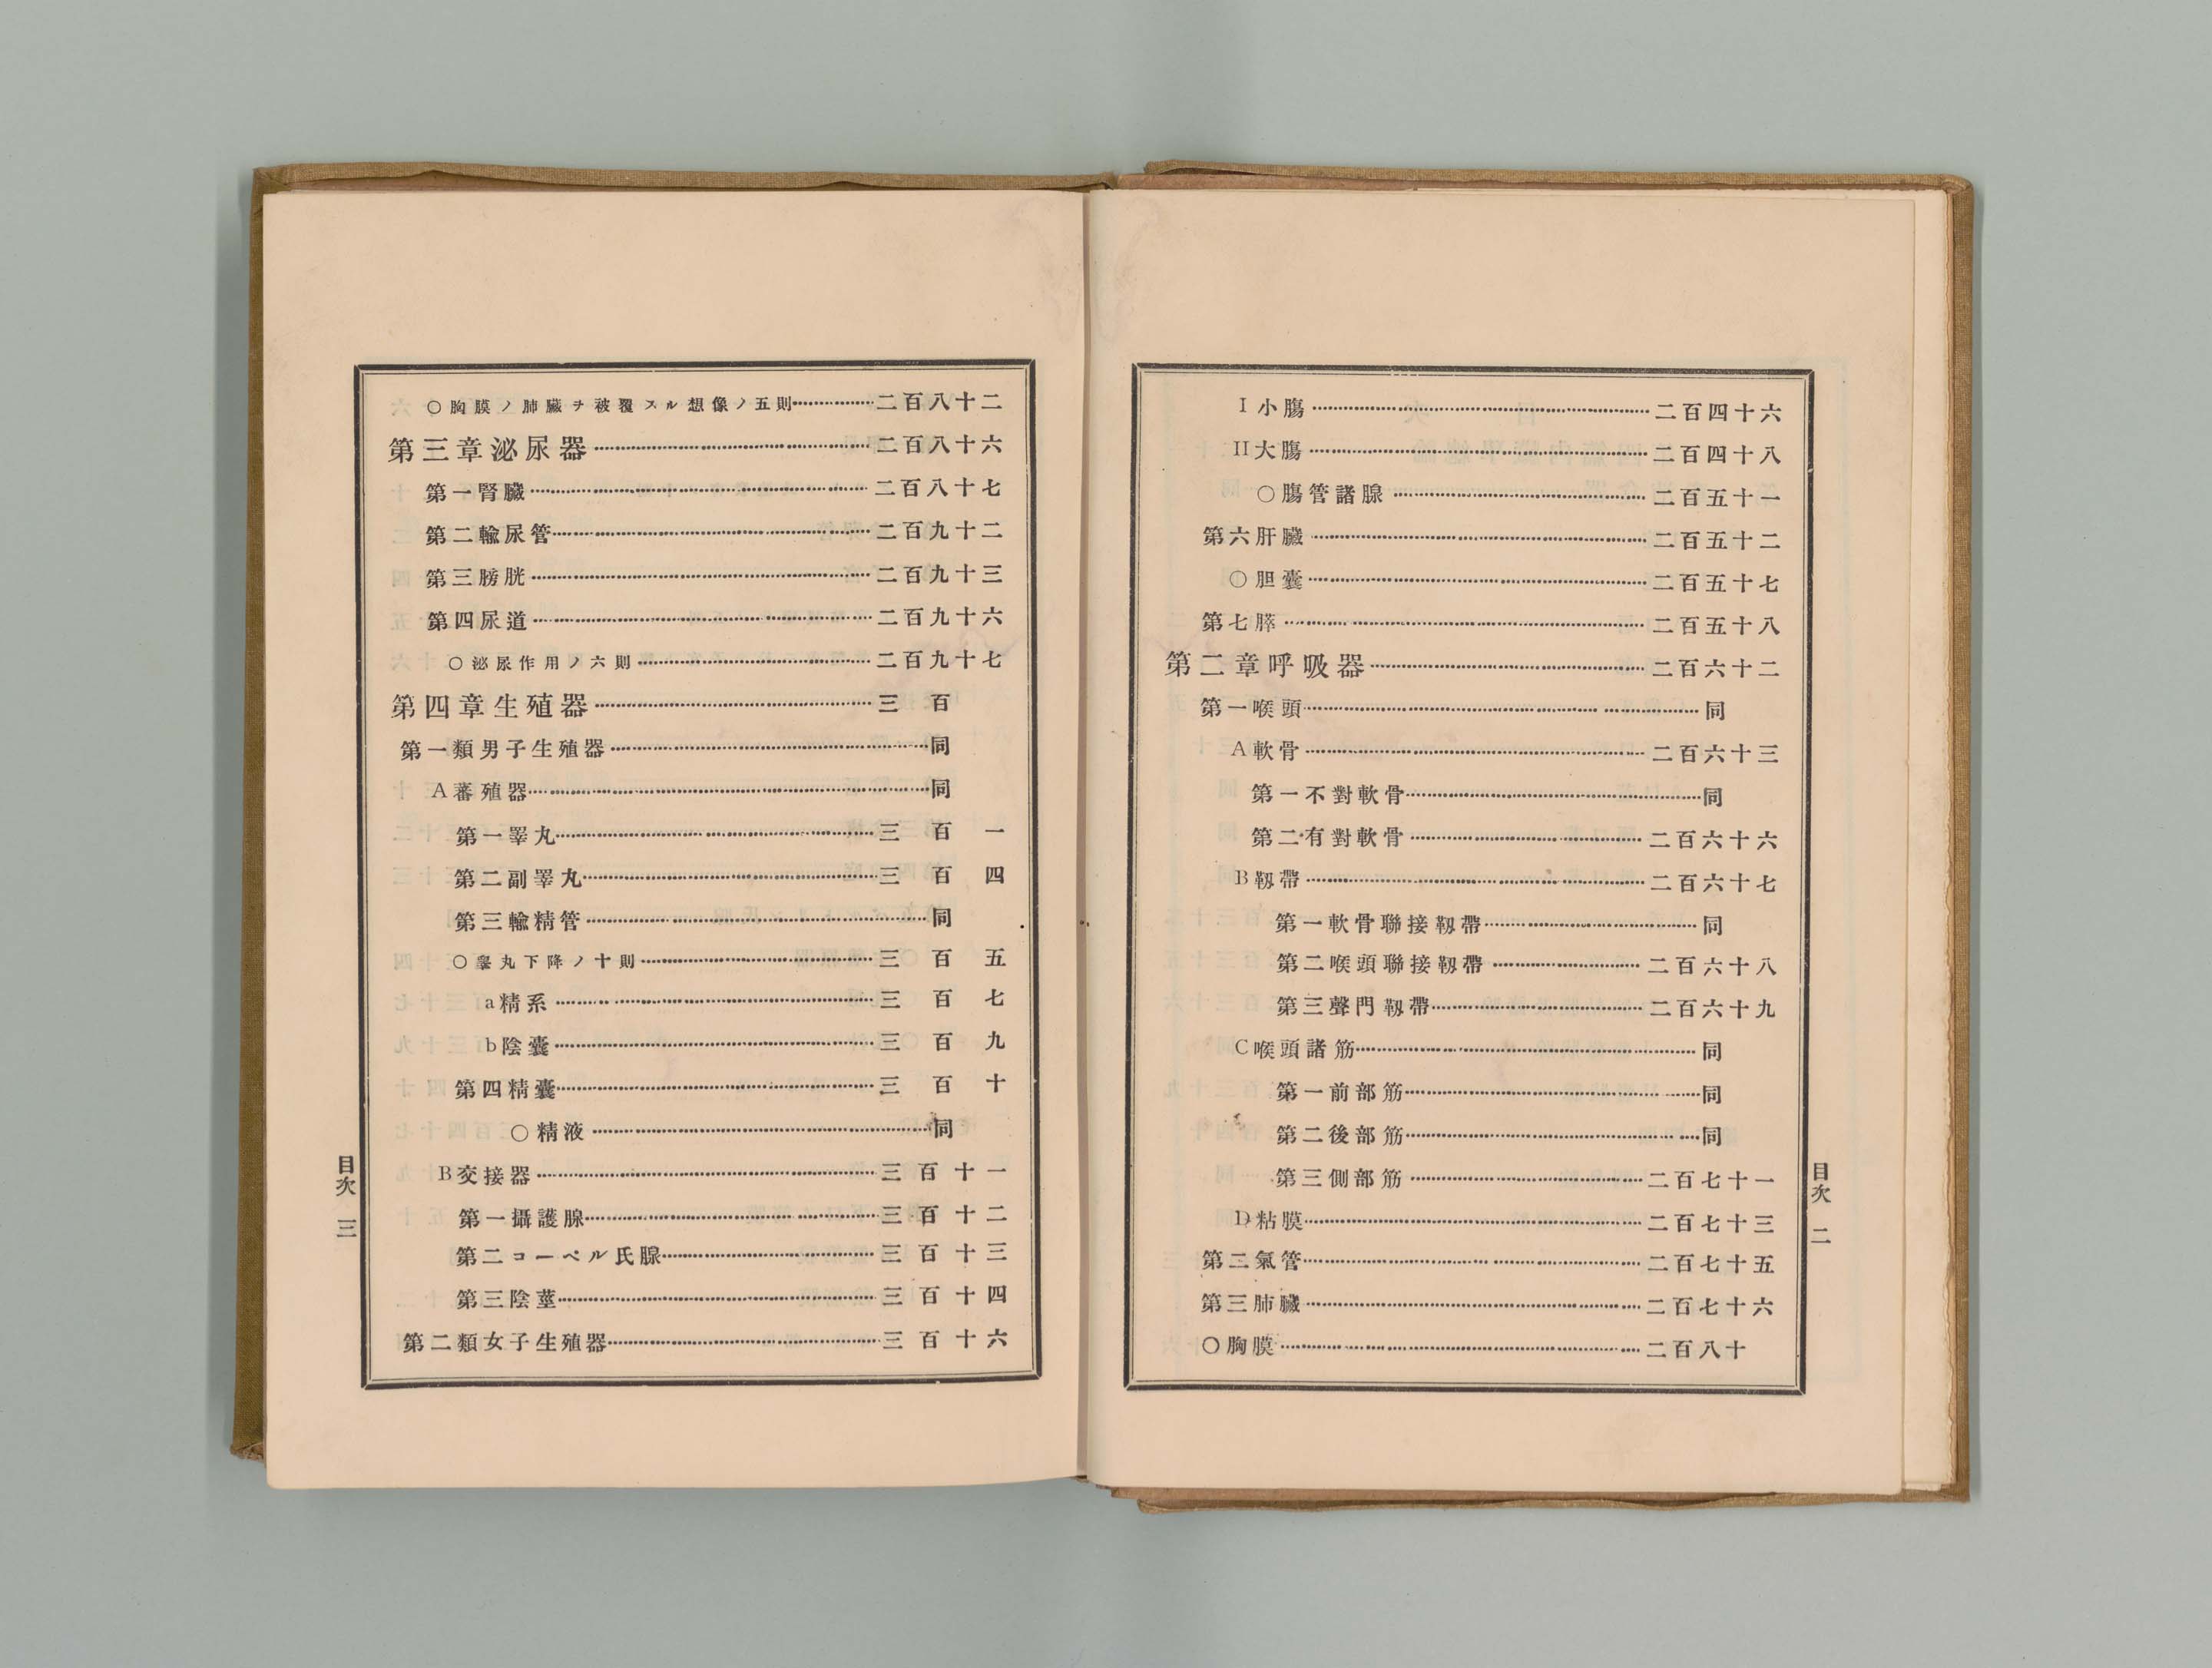 I 小膓…………二百四十六
II 大膓…………二百四十八
○膓管諸腺…………二百五十一
第六肝臟…………二百五十二
○胆囊…………二百五十七
第七膵…………二百五十八
第二章呼吸器…………二百六十二
第一喉頭…………同
A 軟骨…………二百六十三
第一不對軟骨…………同
第二有對軟骨…………二百六十六
B 靱帶…………二百六十七
第一軟骨聯接靱帶…………同
第二喉頭聯接靱帶…………二百六十八
第三聲門靱帶…………二百六十九
C 喉頭諸筋…………同
第一前部筋…………同
第二後部筋…………同
第三側部筋…………二百七十一
D 粘膜…………二百七十三
第二氣管…………二百七十五
第三肺臟…………二百七十六
○胸膜…………二百八十
目次 二
○胸膜ノ肺臟ヲ被覆スル想像ノ五則…………二百八十二
第三章泌尿器…………二百八十六
第一腎臟…………二百八十七
第二輸尿管…………二百九十二
第三膀胱…………二百九十三
第四尿道…………二百九十六
○泌尿作用ノ六則…………二百九十七
第四章生殖器…………三百
第一類男子生殖器…………同
A 蕃殖器…………同
第一睪丸…………三百一
第二副睪丸…………三百四
第三輸精管…………同
○睾丸下降ノ十則…………三百五
a 精系…………三百七
b 陰囊…………三百九
第四精囊…………三百十
○精液…………同
B 交接器…………三百十一
第一攝護腺…………三百十二
第二コーペル氏腺…………三百十三
第三陰莖…………三百十四
第二類女子生殖器…………三百十六
目次 三